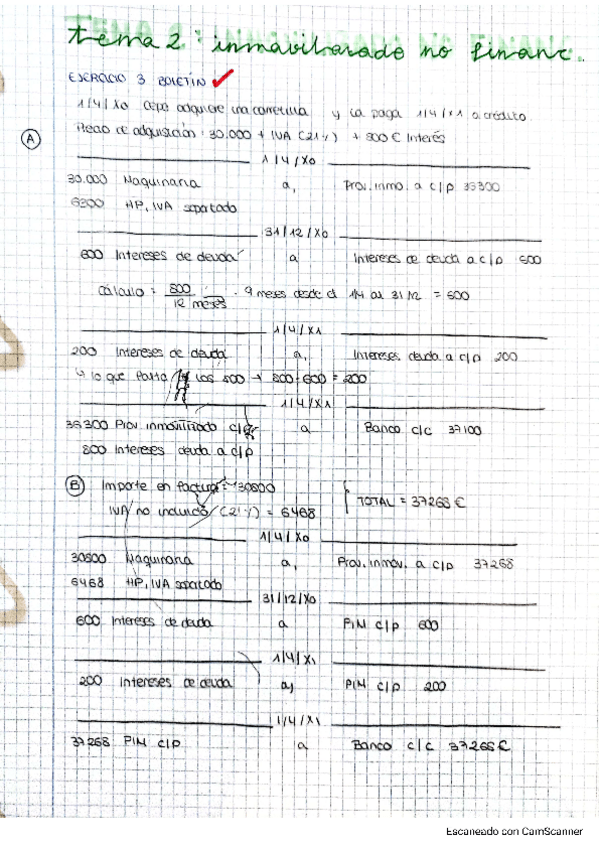 tema 2: inmovilizado no financ.
EJERCICIO 3 BOLETÍN
1/4/X0 Cepa adquiere una carretilla y la paga 1/4/X1 a crédito.
Precio de adquisición: 30.000 + IVA (21%) + 800€ Interés
A
1/4/X0
30.000 Maquinaria a, Prov. inmo. a c/p 36300
6300 HP, IVA soportado
31/12/X0
600 Intereses de deuda a Intereses de deuda a c/p 600
Cálculo = 800 / 12 meses · 9 meses desde el 1/4 al 31/12 = 600
1/4/X1
200 Intereses de deuda a, Intereses deuda a c/p 200
lo que falta los 800 → 800-600 = 200
1/4/X1
36300 Prov inmovilizado c/p a Banco c/c 37100
800 Intereses deuda a c/p
B Importe en factura = 30800
IVA no incluido (21%) = 6468
TOTAL = 37268€
1/4/X0
30800 Maquinaria a, Prov. inmov. a c/p 37268
6468 HP, IVA soportado
31/12/X0
600 Intereses de deuda a PIM c/p 600
1/4/X1
200 Intereses de deuda a, PIM c/p 200
1/4/X1
37268 PIM c/p a Banco c/c 37268€
Escaneado con CamScanner